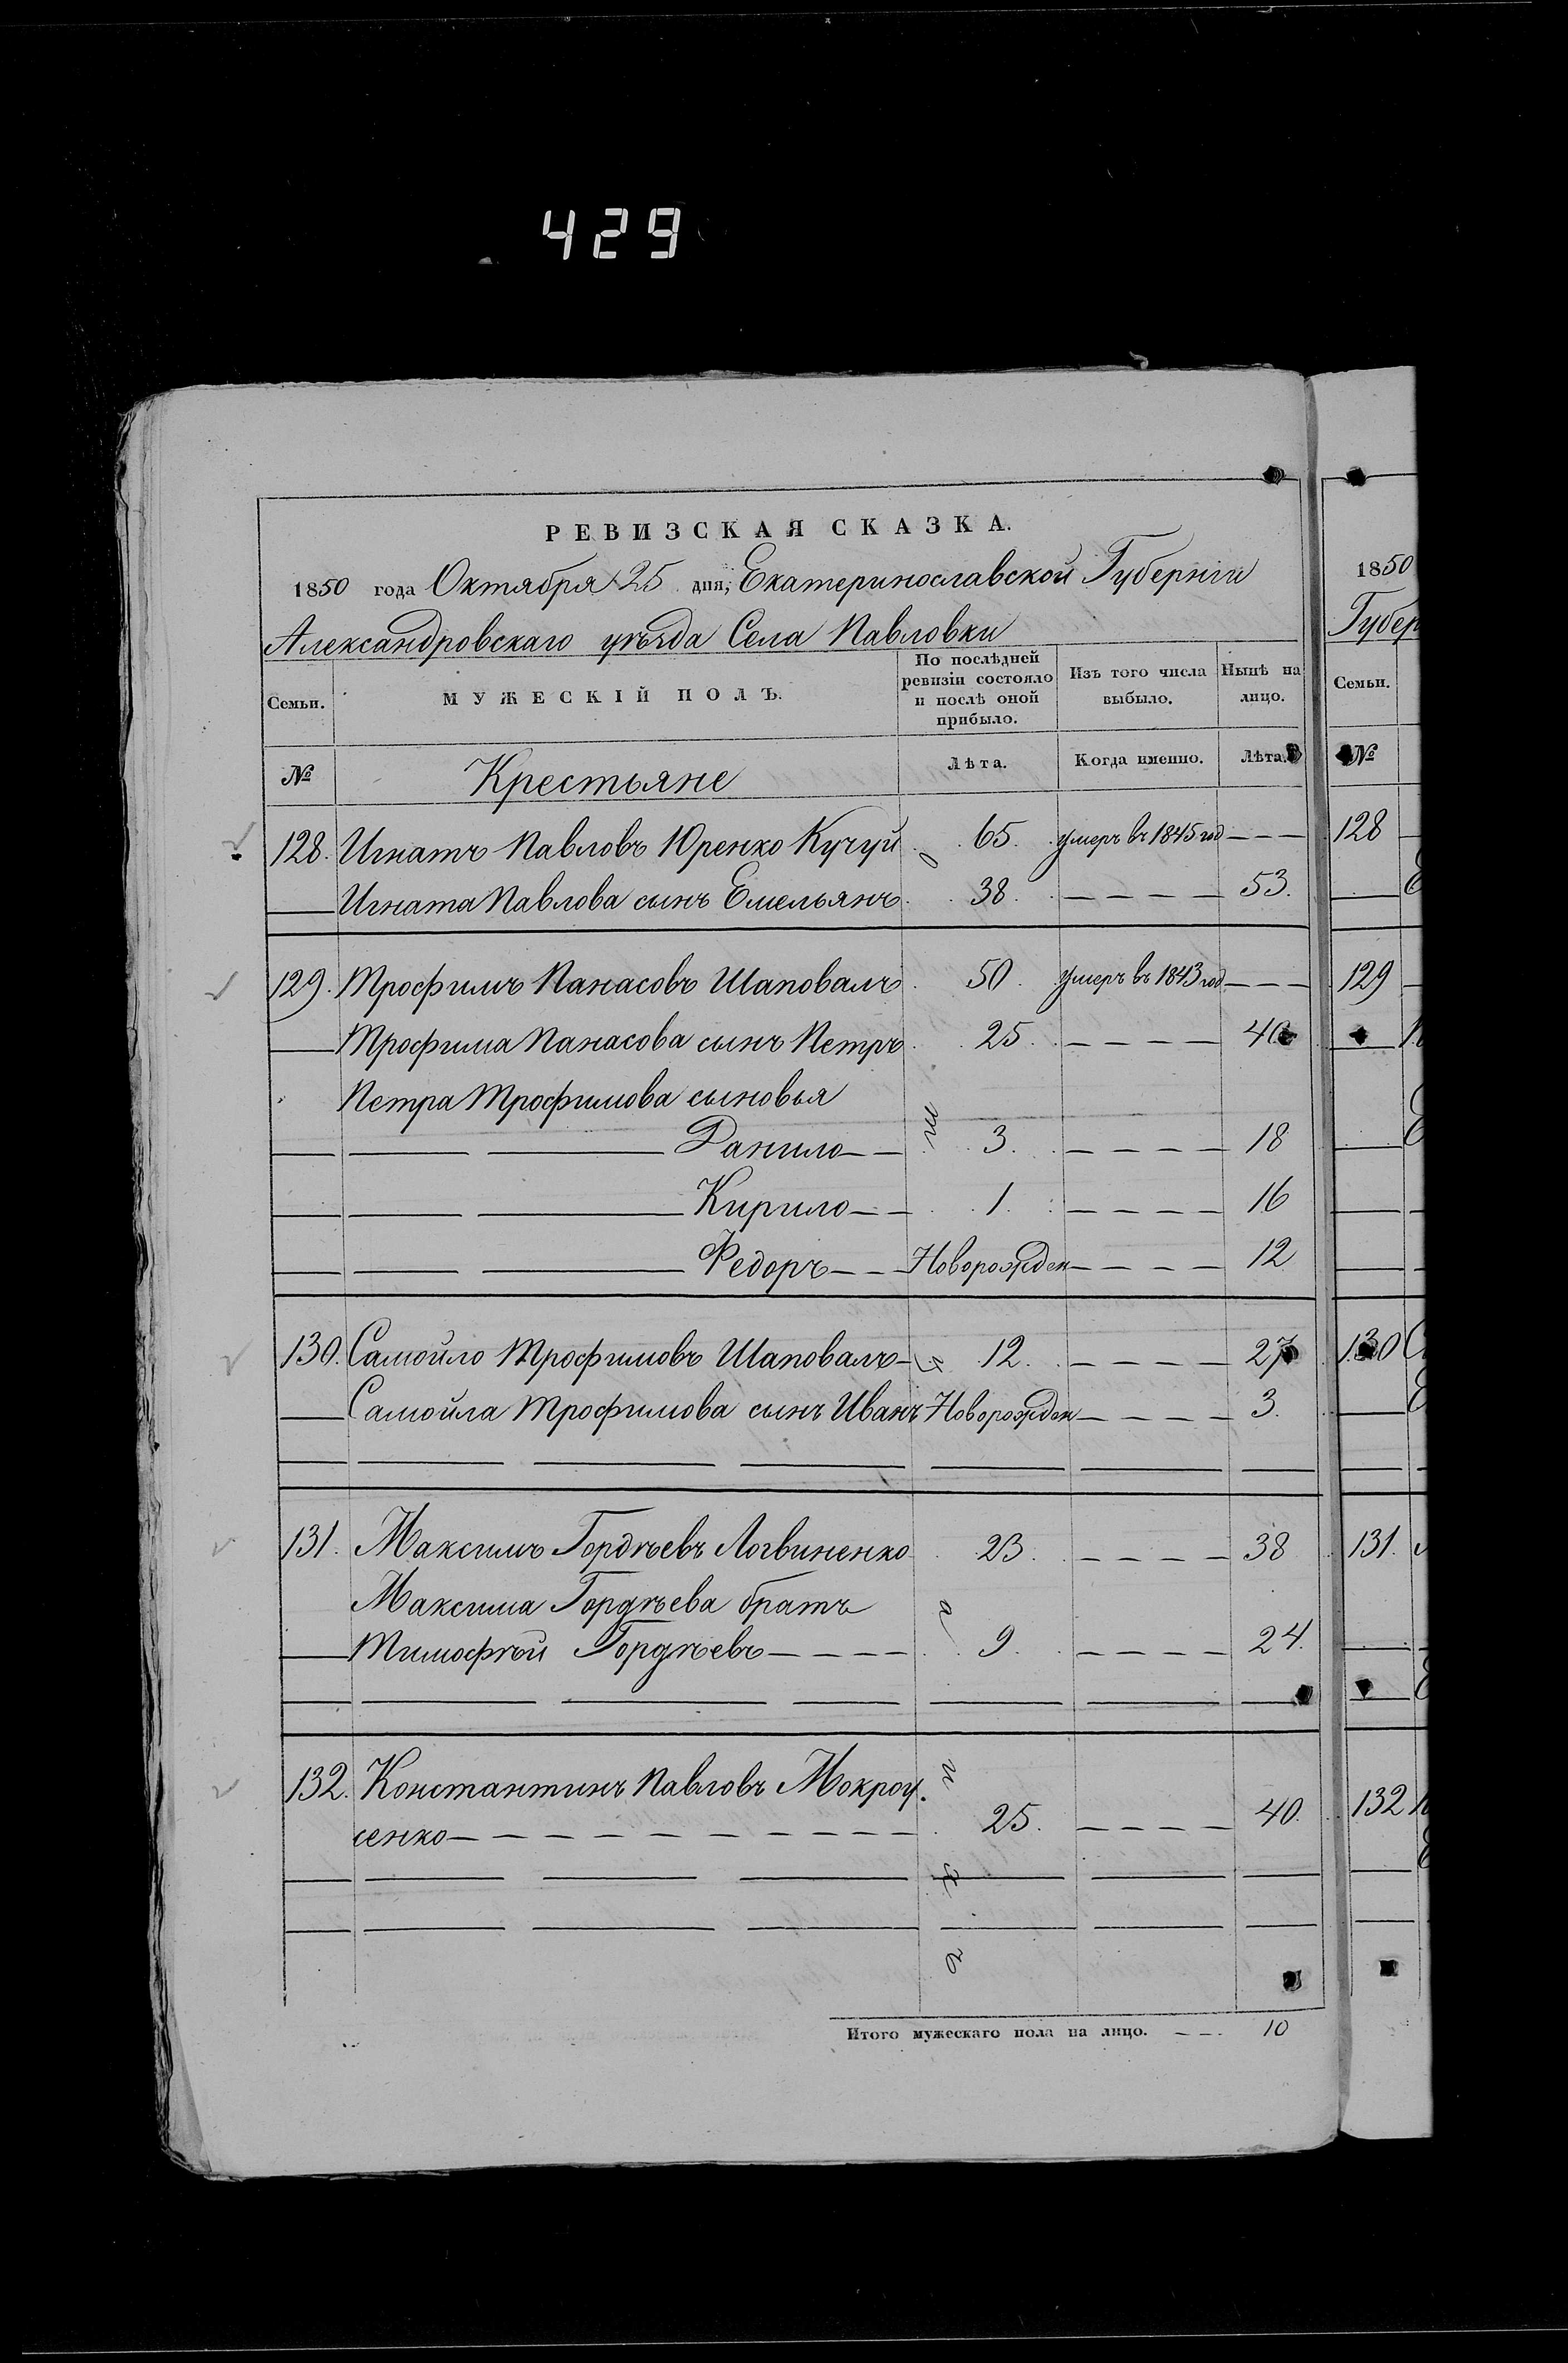 429
РЕВИЗСКАЯ СКАЗКА.
1850 года Октября 25 дня, Екатеринославской Губерніи
Александровскаго уѣзда Села Павловки
Семьи.
МУЖЕСКІЙ ПОЛЪ.
По послѣдней ревизіи состояло и послѣ оной прибыло.
Изъ того числа выбыло.
Нынѣ на лицо.
№ Крестьяне Лѣта. Когда именно. Лѣта.
128. Игнатъ Павловъ Юренко Кучуй 65. умеръ въ 1845 год
Игната Павлова сынъ Емельянъ 38. 53.
129. Трофимъ Панасовъ Шаповалъ 50. умеръ въ 1843 год
Трофима Панасова сынъ Петръ 25. 40
Петра Трофимова сыновья
Данило 3. 18
Кирило 1. 16
Федоръ Новорожден 12
130. Самойло Трофимовъ Шаповалъ 12. 27
Самойла Трофимова сынъ Иванъ Новорожден 3.
131. Максимъ Гордѣевъ Логвиненко 23. 38
Максима Гордѣева братъ
Тимофѣй Гордѣевъ 9. 24.
132. Константинъ Павловъ Мокроу
сенко 25. 40.
Итого мужескаго пола на лицо. 10
1850
Губер
Семьи.
№
128
129
130
131.
132